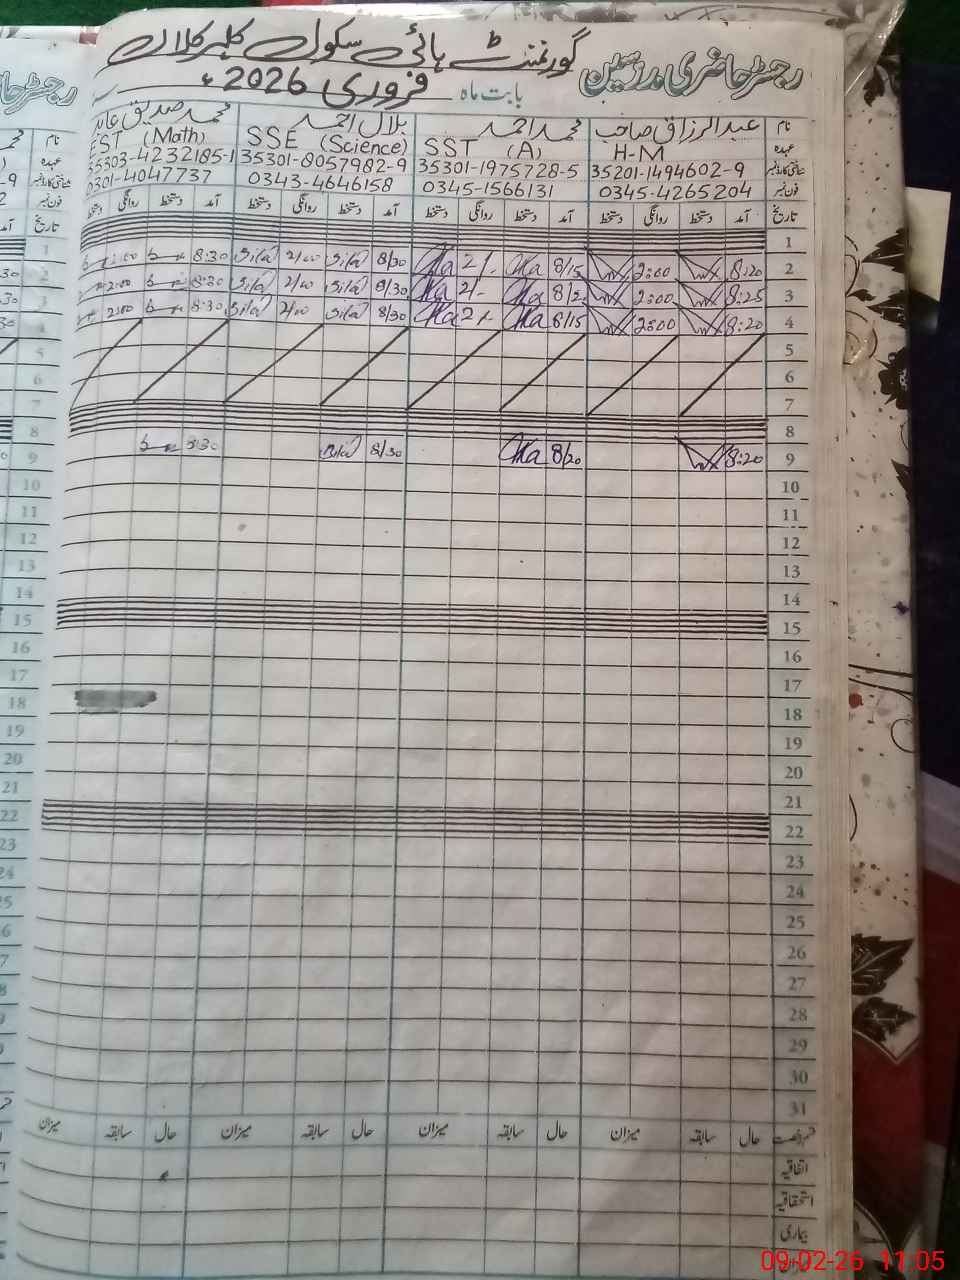 رجسٹر حاضری مدرسین گورنمنٹ ہائی سکول کلیر کلاں
بابت ماہ فروری 2026ء
نام عبدالرزاق صاحب محمد احمد بلال احمد محمد صدیق عابد
عہدہ H-M SST (A) SSE (Science) EST (Math)
شناختی کارڈ نمبر 35201-1494602-9 35301-1975728-5 35301-8057982-9 35303-4232185-1
فون نمبر 0345-4265204 0345-1566131 0343-4646158 0301-4047737
تاریخ آمد دستخط روانگی دستخط آمد دستخط روانگی دستخط آمد دستخط روانگی دستخط آمد دستخط روانگی دستخط
1
2 8:20 2:00 8/15 2/- 8/30 2/00 8:30 2:00
3 8:25 2:00 2/- 8/30 2/00 8:30 2:00
4 8:20 2:00 8/15 8/30 2/00 8:30 2:00
5
6
7
8
9 8:20 8/20 8/30 8:30
10
11
12
13
14
15
16
17
18
19
20
21
22
23
24
25
26
27
28
29
30
31
قسم رخصت حال سابقہ میزان حال سابقہ میزان حال سابقہ میزان حال سابقہ میزان
اتفاقیہ
استحقاقیہ
بیماری
09-02-26 11:05